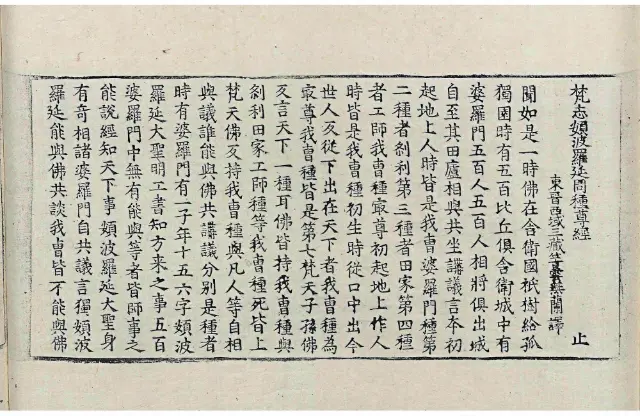 梵志頞波羅延問種尊經 止
東晉西域三藏竺曇無蘭譯
聞如是一時佛在舍衛國祇樹給孤
獨園時有五百比丘俱舍衛城中有
婆羅門五百人五百人相將俱出城
自至其田廬相與共坐講議言本初
起地上人時皆是我曹婆羅門種第
二種者剎利第三種者田家第四種
者工師我曹種㝡尊初起地上作人
時皆是我曹種初生時從口中出今
世人反從下出在天下者我曹種為
㝡尊我曹種皆是第七梵天子孫佛
反言天下一種耳佛皆持我曹種與
剎利田家工師種等我曹種死皆上
梵天佛反持我曹種與凡人等自相
與議誰能與佛共講議分別是種者
時有婆羅門有一子年十五六字頞波
羅延大聖明工書知方来之事五百
婆羅門中無有能與等者皆師事之
能說經知天下事頞波羅延大聖身
有奇相諸婆羅門自共議言獨頞波
羅延能與佛共談我曹皆不能與佛